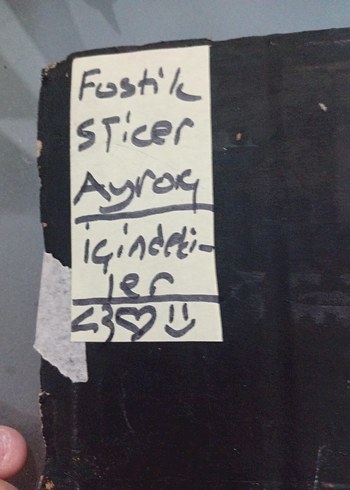 Fostik
STicer
Ayraç
içindeki-
ler
<3♡ :)